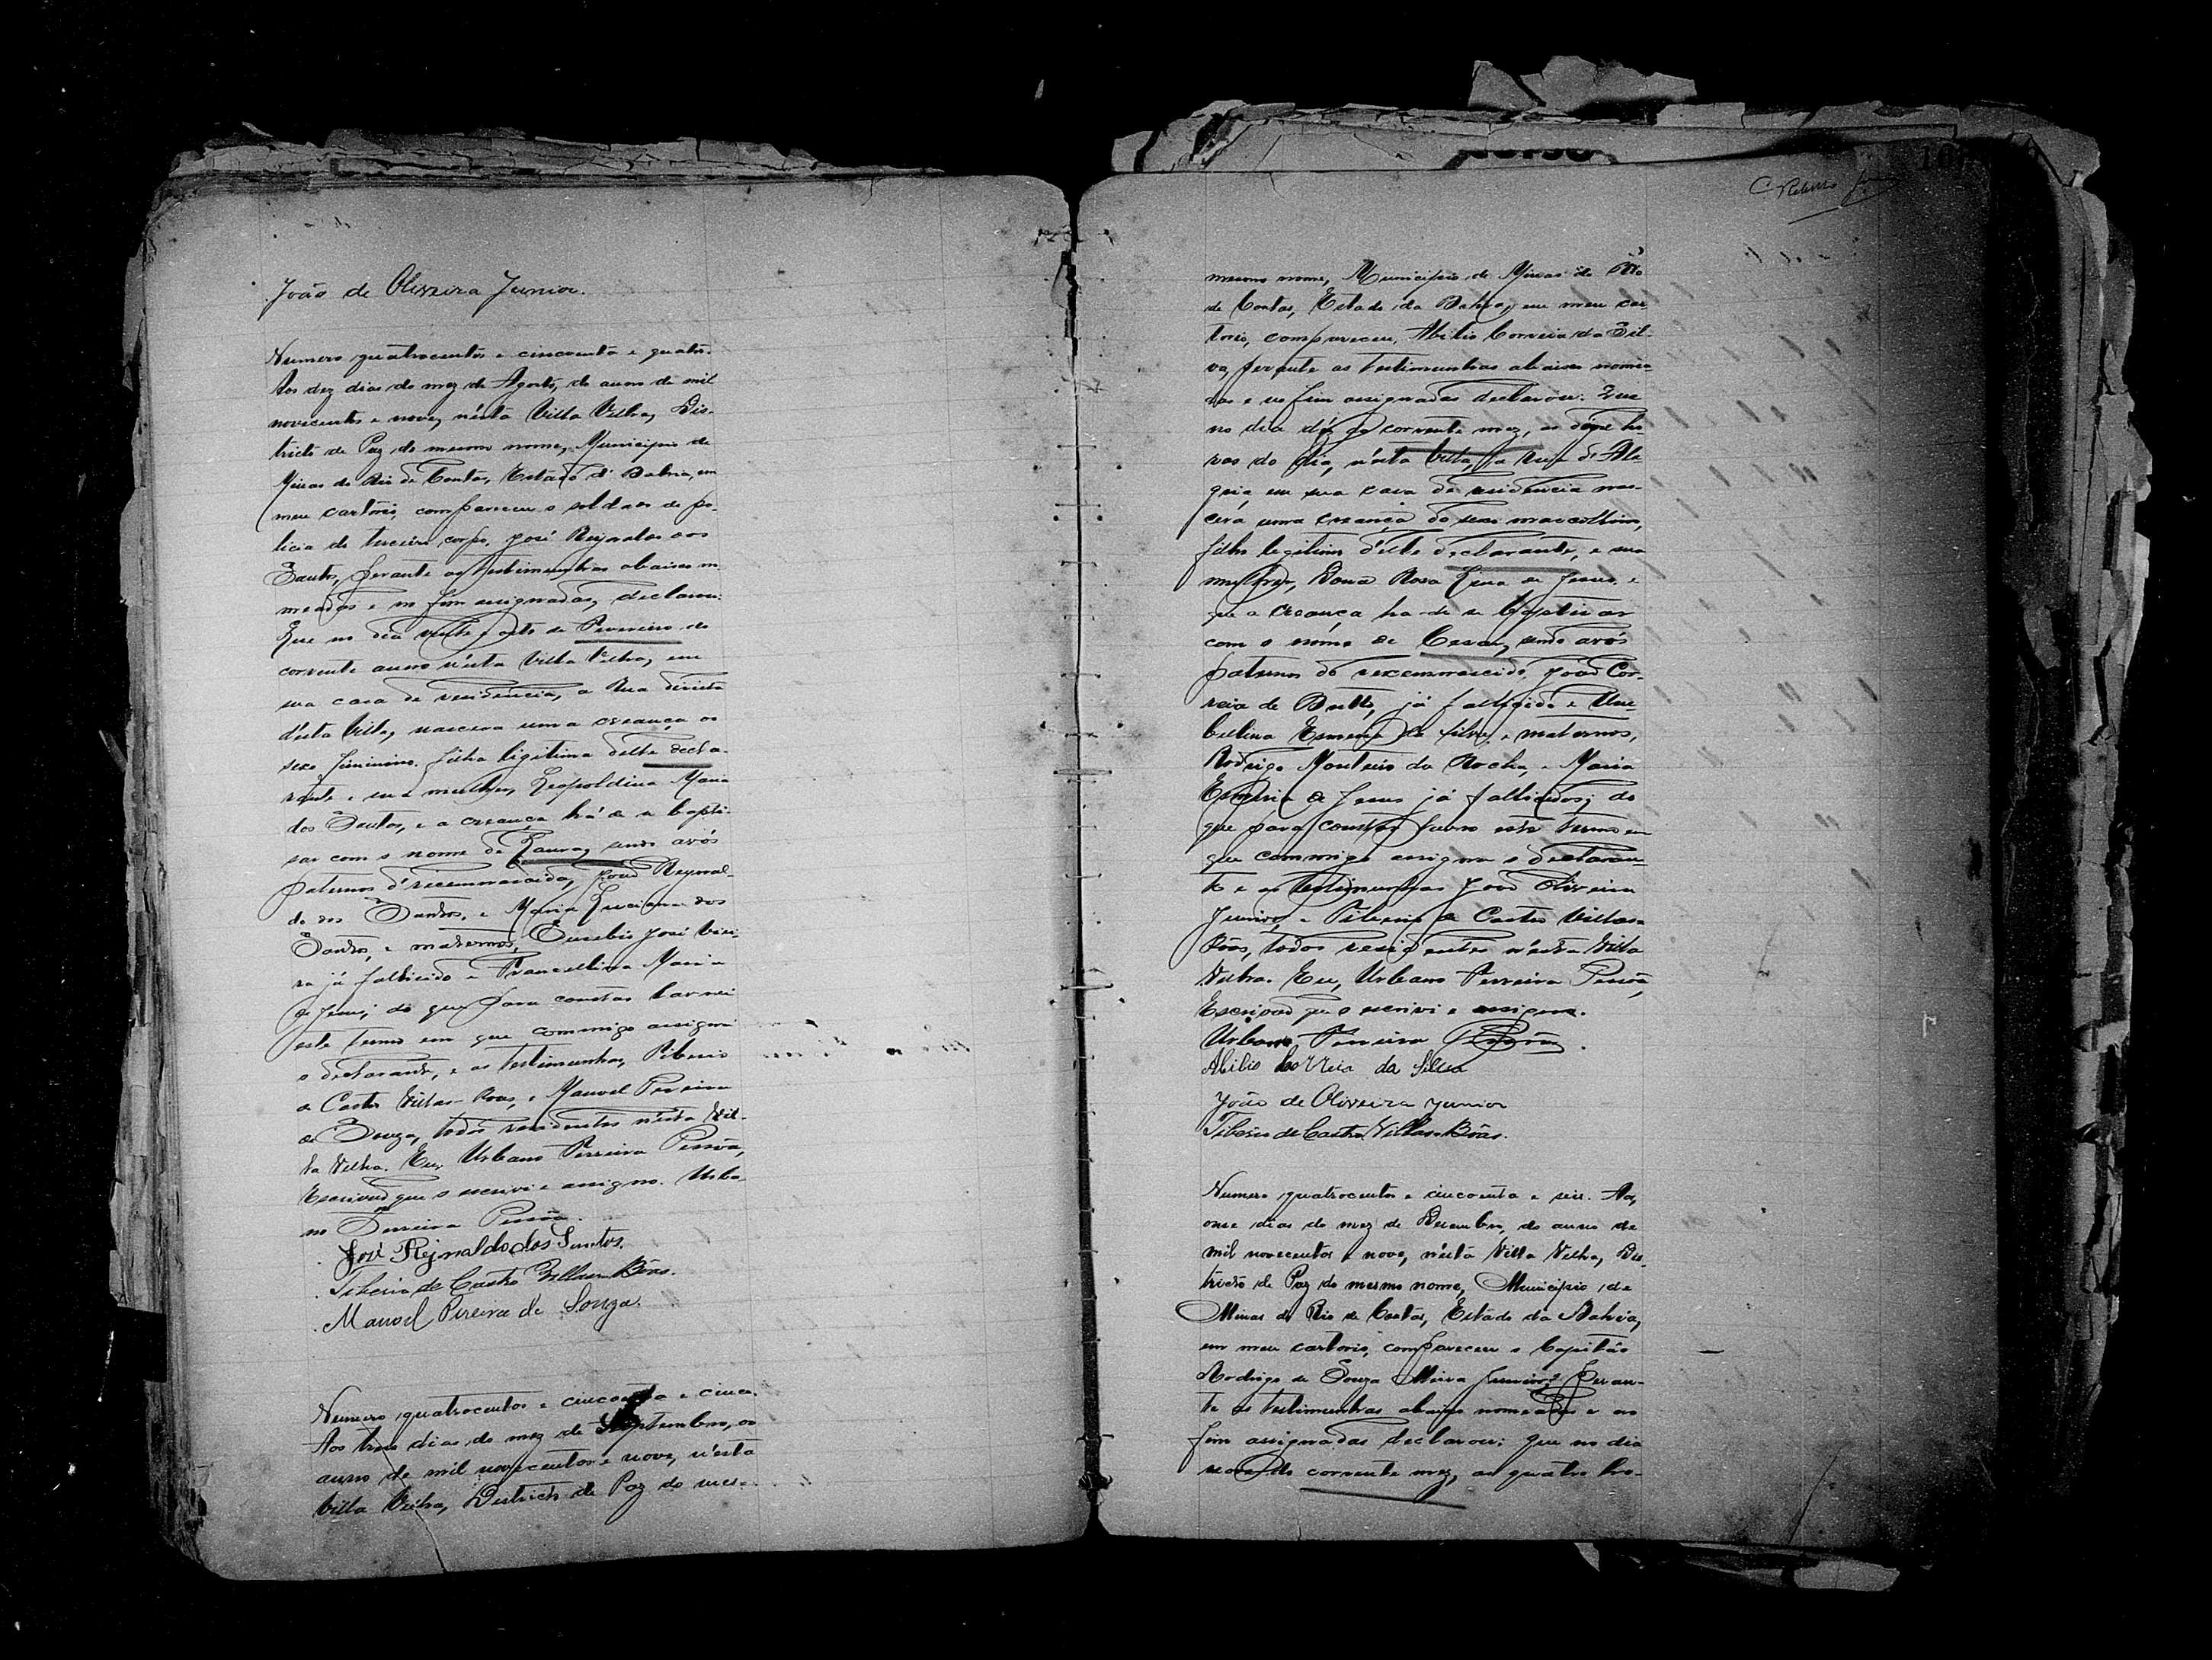 João de Oliveira Junior.
Numero quatrocentos e cincoenta e quatro.
Aos dez dias do mez de Agosto, do anno de mil
novecentos e nove, n'ésta Villa Velha, Dis-
tricto de Paz do mesmo nome, Municipio de
Minas do Rio de Contas, Estado d' Bahia, em
meu cartorio, compareceu o soldado de po-
licia do terceiro corpo, José Reynaldo dos
Santos, perante as testimunhas abaixo no
meados e no fim assignadas, declarou:
Que no dia vinte e oito de Fevereiro do
corrente anno n'ésta Villa Velha, em
sua casa de residencia, a Rua direita
d'ésta Villa, nascera uma creança do
sexo feminino, filha ligitima d'elle decla-
rante e sua mulher, Leopoldina Maria
dos Santos, e a creança há de se bapti-
sar com o nome de Laura, sendo avós
paternos d'recemnascida, José Reynal-
do dos Santos, e Maria Luciana dos
Santos, e maternos, Eusebio José Viei-
ra já fallicido e Francellina Maria
de Jesus, do que para constar lavrei
este termo em que commigo assigna
o declarante, e as testimunhas, Tiberio
de Castro Villas-Boas, e Manoel Pereira
de Souza, todos residentes n'ésta Vil-
la Velha. Eu, Urbano Ferreira Pessôa,
Escrivão que o escrivi e assigno. Urba-
no Ferreira Pessôa.
José Rejnaldo dos Santos.
Tiberio de Castro Villas-Bôas.
Manoel Pereira de Souza.
Numero quatrocentos e cincoenta e cinco.
Aos tres dias do mez de Septembro, do
anno de mil novecentos e nove, n'ésta
Villa Velha, Districto de Paz do mes-
107
mesmo nome, Municipio de Minas do Rio
de Contas, Estado da Bahia, em meu car
torio, compareceu, Abilio Correia da Sil-
va, perante as testimunhas abaixo nomea-
das e no fim assignadas declarou: Que
no dia do corrente mez, as doze ho-
ras do dia, n'ésta Villa, a Rua d'Ale-
gria, em sua casa de residencia nas-
cera uma creança do sexo masculino,
filho legitimo d'elle declarante, e sua
mulher, Dona Rosa Lina de Jesus, e
que a creança ha-de se baptisar
com o nome de Cesar, sendo avós
paternos do recemnascido, João Cor-
reia de Britto, já fallicido e Um-
bellina Esmeria da Silva, e maternos,
Rodrigo Monteiro da Rocha, e Maria
Esmeria de Jesus já fallicidos; do
que para constar lavro este termo em
que commigo assigna o declaran-
te e as testimunhas João Oliveira
Junior, e Tiberio de Castro Villas-
Bôas, todos residentes n'ésta Villa
Velha. Eu, Urbano Ferreira Pessôa,
Escrivão que o escrivi e assigno.
Urbano Ferreira Pessôa.
Abilio Correia da Silva
João de Oliveira Junior
Tiberio de Castro Villas-Bôas.
Numero quatrocentos e cincoenta e seis. Aos
onze dias do mez de Desembro, do anno de
mil novecentos e nove, n'ésta Villa Velha, Dis-
tricto de Paz do mesmo nome, Municipio de
Minas do Rio de Contas, Estado da Bahia,
em meu cartorio, compareceu o Capitão
Rodrigo de Souza Meira Junior, peran-
te as testimunhas abaixo nomeadas e no
fim assignadas declarou: que no dia
nove do corrente mez, as quatro ho-